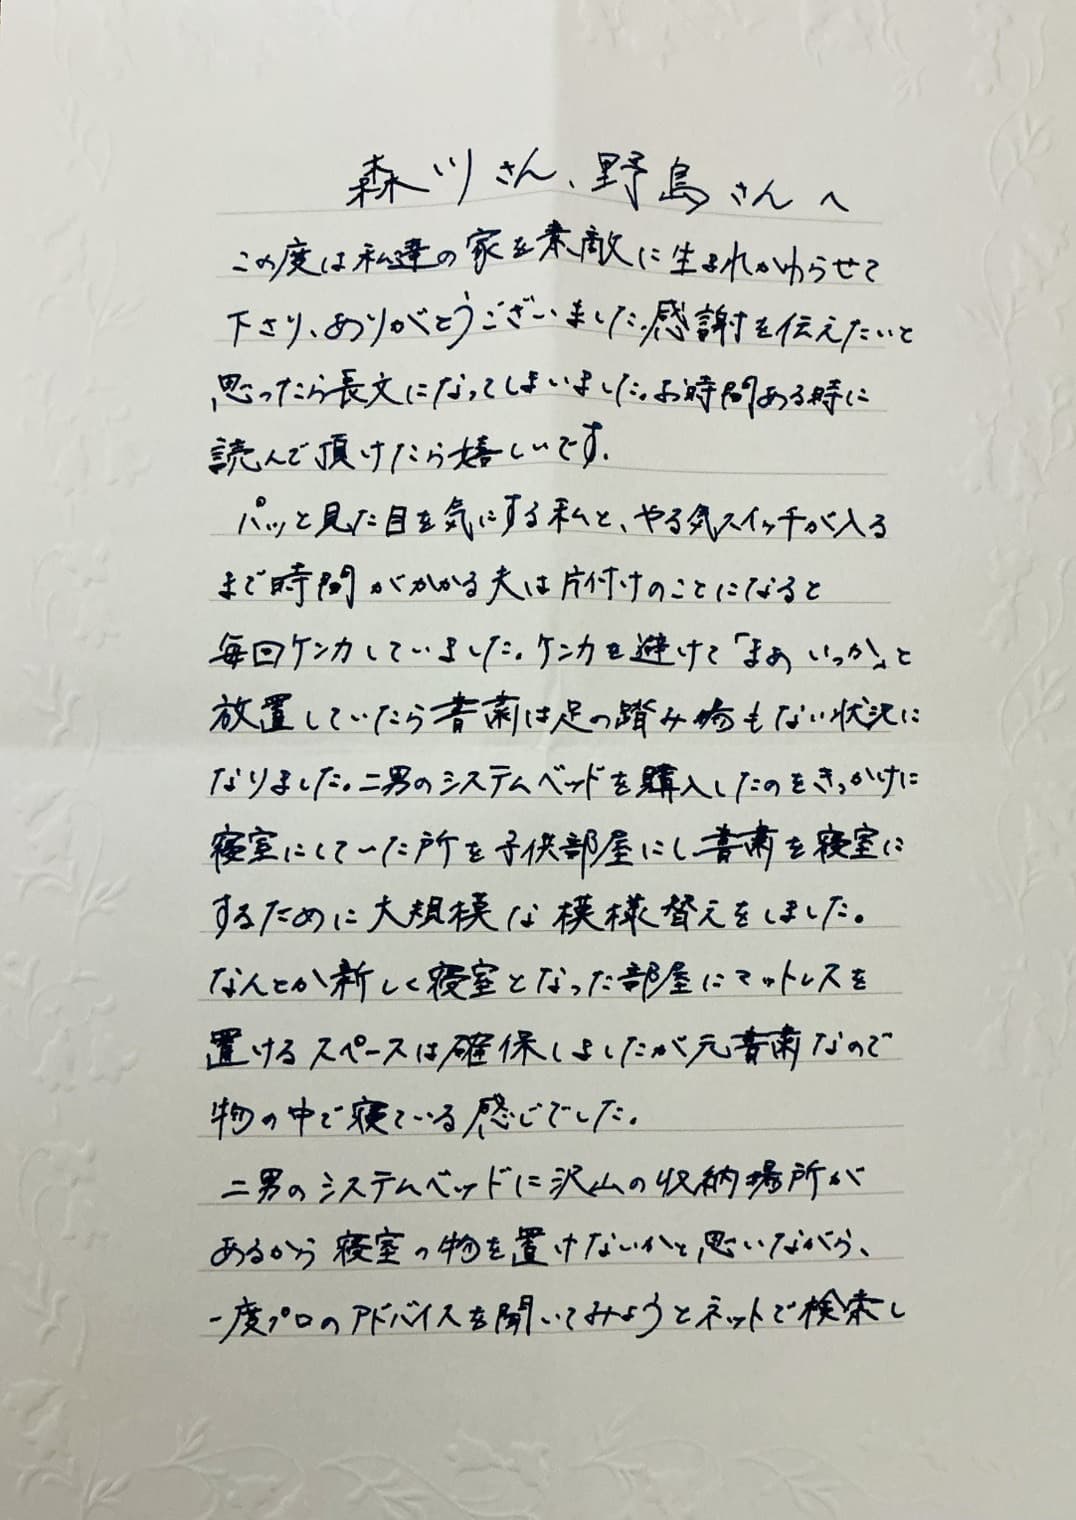 森川さん、野島さんへ
この度は私達の家を素敵に生まれかわらせて
下さり、ありがとうございました。感謝を伝えたいと
思ったら長文になってしまいました。お時間ある時に
読んで頂けたら嬉しいです。
パッと見た目を気にする私と、やる気スイッチが入る
まで時間がかかる夫は片付けのことになると
毎回ケンカしていました。ケンカを避けて「まあいっか」と
放置していたら書斎は足の踏み場もない状況に
なりました。二男のシステムベッドを購入したのをきっかけに
寝室にしていた所を子供部屋にし書斎を寝室に
するために大規模な模様替えをしました。
なんとか新しく寝室となった部屋にマットレスを
置けるスペースは確保しましたが元書斎なので
物の中で寝ている感じでした。
二男のシステムベッドに沢山の収納場所が
あるから寝室の物を置けないかと思いながら、
一度プロのアドバイスを聞いてみようとネットで検索し